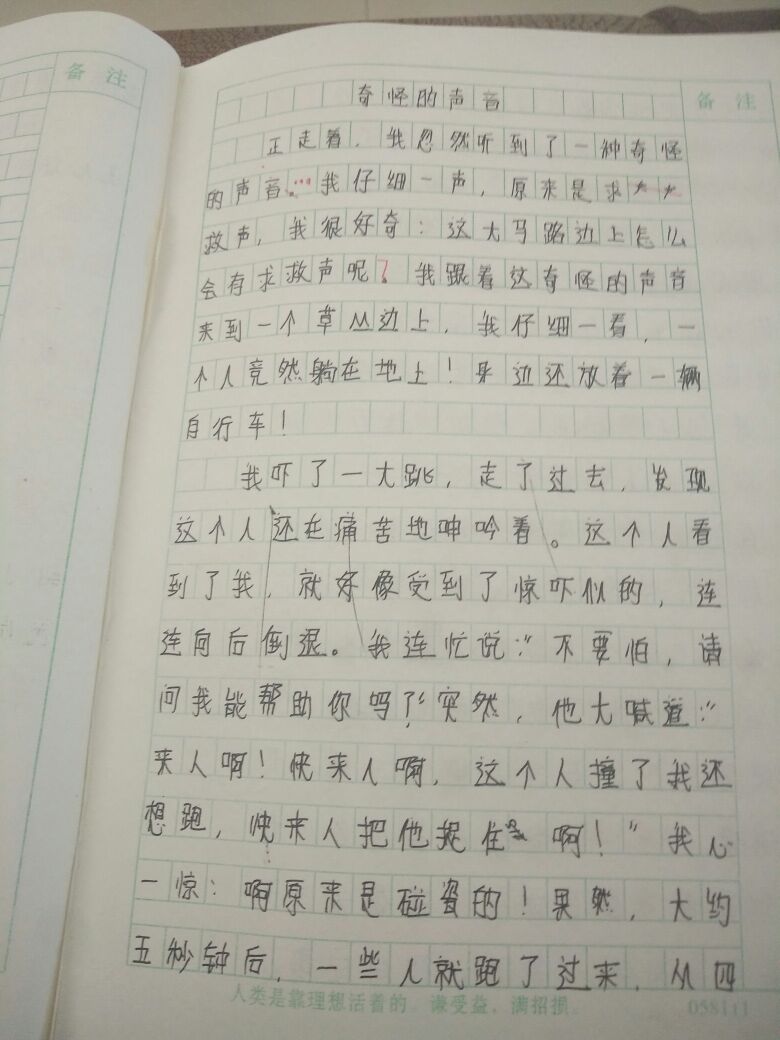 备注
奇怪的声音
备注
正走着，我忽然听到了一种奇怪
的声音…我仔细一声，原来是求
救声，我很好奇：这大马路边上怎么
会有求救声呢？我跟着这奇怪的声音
来到一个草丛边上，我仔细一看，一
个人竟然躺在地上！旁边还放着一辆
自行车！
我吓了一大跳，走了过去，发现
这个人还在痛苦地呻吟着。这个人看
到了我，就好像受到了惊吓似的，连
连向后倒退。我连忙说："不要怕，请
问我能帮助你吗？"突然，他大喊道："
来人啊！快来人啊，这个人撞了我还
想跑，快来人把他捉住啊！"我心
一惊：啊原来是碰瓷的！果然，大约
五秒钟后，一些人就跑了过来，从四
人类是靠理想活着的 谦受益，满招损
058111